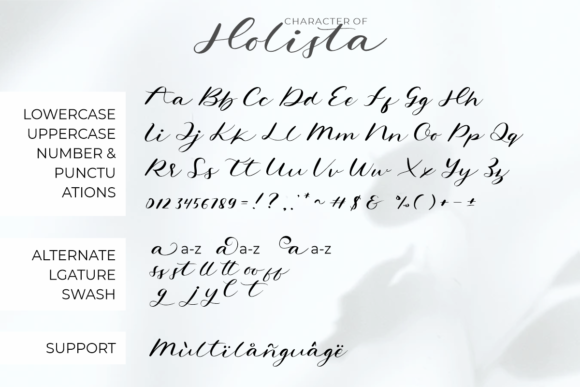 CHARACTER OF
Holista
LOWERCASE
UPPERCASE
NUMBER &
PUNCTU
ATIONS
Aa Bb Cc Dd Ee Ff Gg Hh
Ii Jj Kk Ll Mm Nn Oo Pp Qq
Rr Ss Tt Uu Vv Ww Xx Yy Zz
0123456789=!?,:·"*~#$& %()+-±
ALTERNATE
LGATURE
SWASH
a a-z a a-z a a-z
ss st ll tt oo ff
g j y l t
SUPPORT
Mùltïlåñguâgë